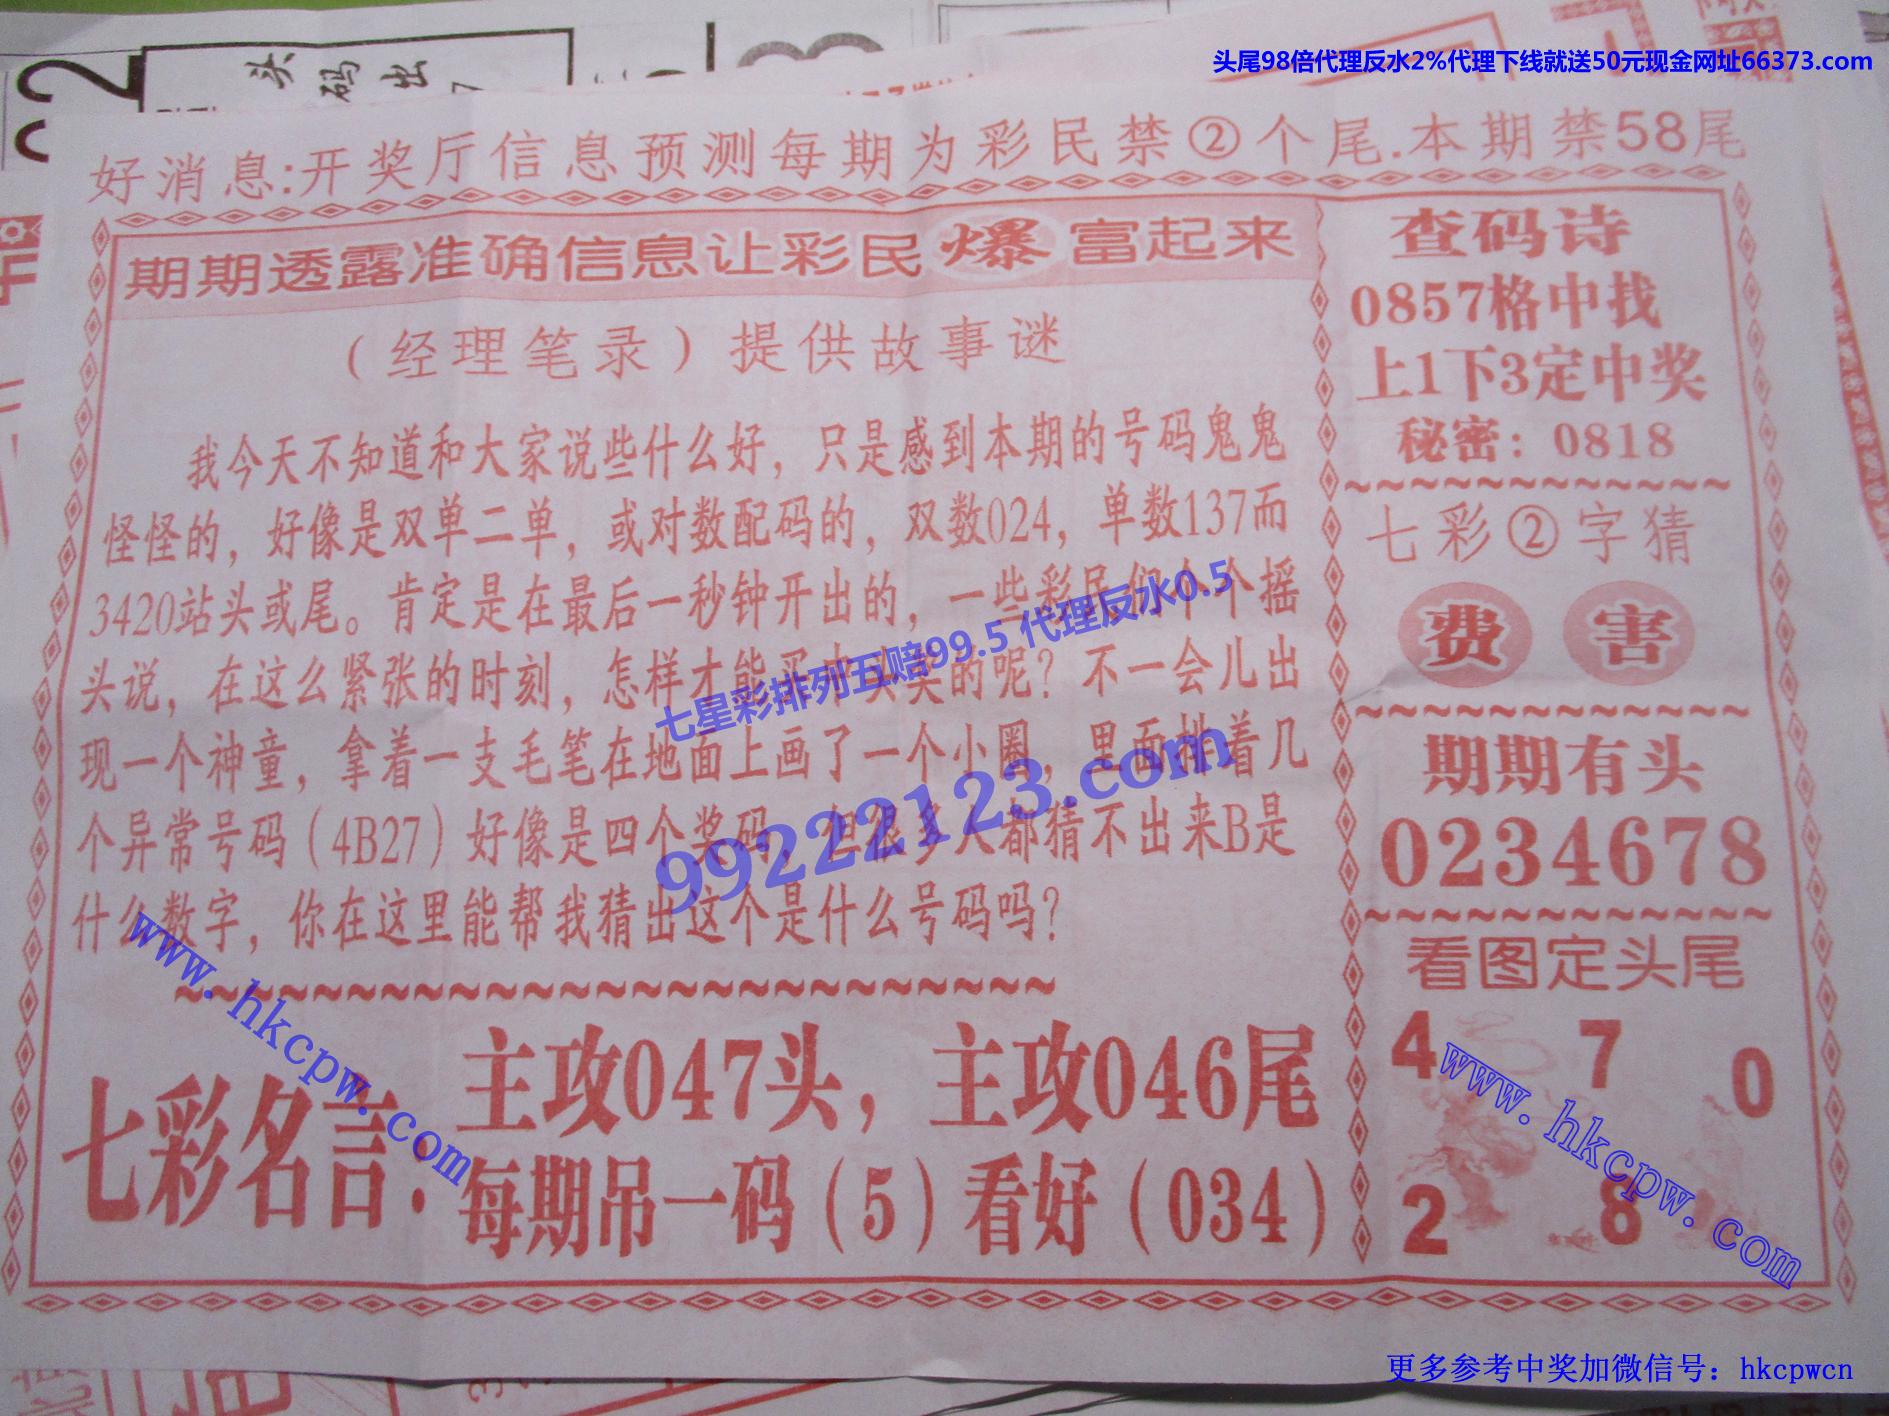 头尾98倍代理反水2%代理下线就送50元现金网址66373.com
头码出
好消息:开奖厅信息预测每期为彩民禁②个尾.本期禁58尾
期期透露准确信息让彩民爆富起来
（经理笔录）提供故事谜
我今天不知道和大家说些什么好，只是感到本期的号码鬼鬼
怪怪的，好像是双单二单，或对数配码的，双数024，单数137而
3420站头或尾。肯定是在最后一秒钟开出的，一些彩民们个个摇
头说，在这么紧张的时刻，怎样才能买中头奖的呢？不一会儿出
现一个神童，拿着一支毛笔在地面上画了一个小圈，里面排着几
个异常号码（4B27）好像是四个奖码，但很多人都猜不出来B是
什么数字，你在这里能帮我猜出这个是什么号码吗？
七星彩排列五赔99.5 代理反水0.5
99222123.com
www.hkcpw.com
七彩名言:
主攻047头，主攻046尾
每期吊一码（5）看好（034）
查码诗
0857格中找
上1下3定中奖
秘密：0818
七彩②字猜
费 害
期期有头
0234678
看图定头尾
4 7 0
2 8
www.hkcpw.com
更多参考中奖加微信号：hkcpwcn